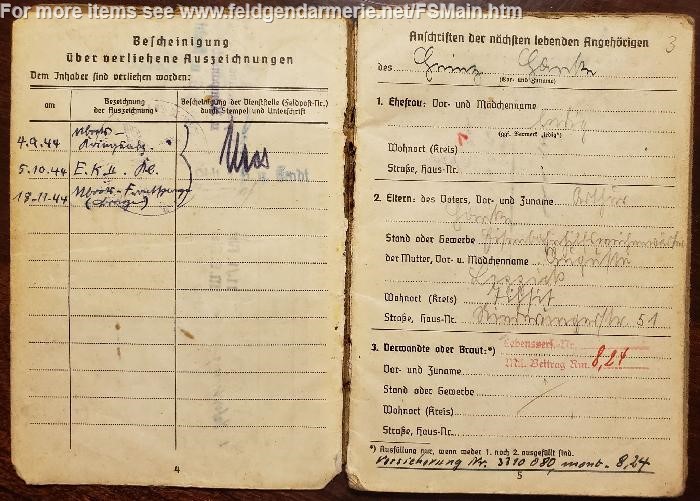 For more items see www.feldgendarmerie.net/FSMain.htm
Bescheinigung
über verliehene Auszeichnungen
Dem Inhaber sind verliehen worden:
am
Bezeichnung
der Auszeichnung
Bescheinigung der Dienststelle (Feldpost-Nr.)
durch Stempel und Unterschrift
4.9.44
5.10.44 E.K. II. Kl.
18.11.44
4
3
Anschriften der nächsten lebenden Angehörigen
des Heinz
(Vor- und Zuname)
1. Ehefrau: Vor- und Mädchenname
ledig
(ggf. Vermerk „ledig")
Wohnort (Kreis)
Straße, Haus-Nr.
2. Eltern: des Vaters, Vor- und Zuname Arthur
Stand oder Gewerbe
der Mutter, Vor- u. Mädchenname Auguste
Wohnort (Kreis) Tilsit
Straße, Haus-Nr. 51
3. Verwandte oder Braut:*) Lebensvers.-Nr.
Mtl. Beitrag Rm. 8,24
Vor- und Zuname
Stand oder Gewerbe
Wohnort (Kreis)
Straße, Haus-Nr.
*) Ausfüllung nur, wenn weder 1. noch 2. ausgefüllt sind.
Versicherung Nr. 3310080, mont. 8,24
5